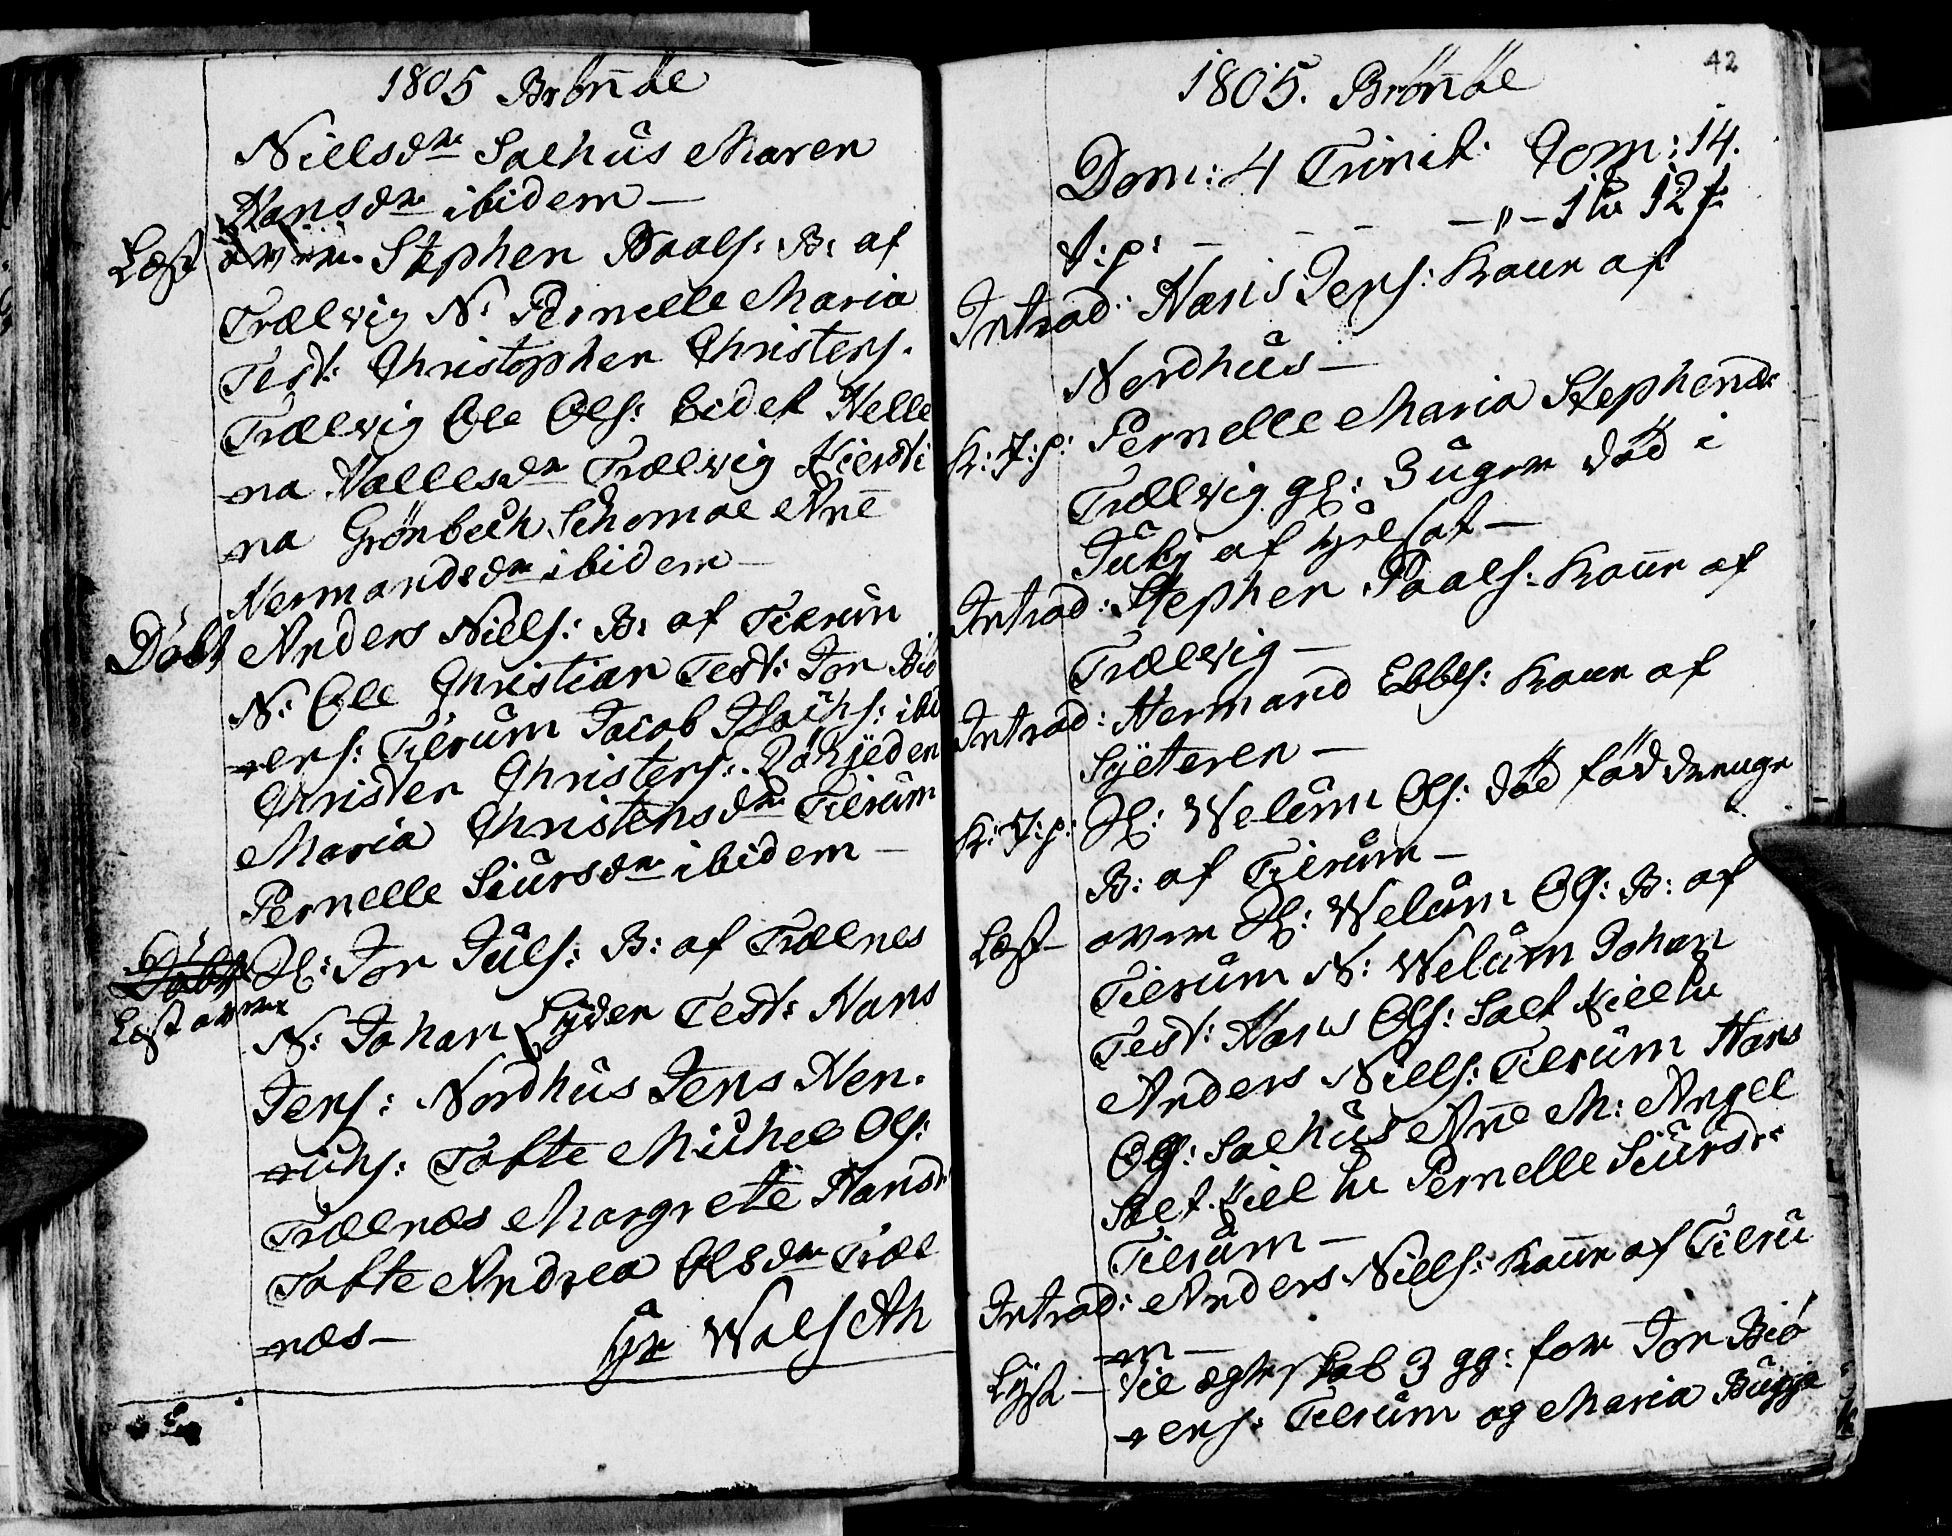 1805 Brönöe
Nielsdr Salhus Maren
Hansdr ibidem —
Læst over Stephen Paals: B: af
Trælvig N: Pernelle Maria
Test: Christopher Christens.
Trælvig Ole Ols: Eidet Helle
na Hallesdr Trælvig Kiersti
na Grönbech Schomoe Ane
Hermandsdr ibidem —
Döbt Anders Niels: B: af Tilrum
N: Ole Christian Test: Jon Biö
rens: Tilrum Jacob Isachs: ibid
Christen Christens:
Maria Christensdr Tilrum
Pernelle Siursdr ibidem —
Döbt
Læst over
H: Jon Juls: B: af Trælnes
N: Johan Lyder Test: Hans
Jens: Nordhus Jens Hen-
richs: Tofte Michel Ols:
Trælnæs Margrete Hansdr
Tofte Andrea Olsdr Træl
næs — Hr Walseth
42
1805. Brönöe
Dom: 4 Trinit: Com: 14.
t: p: — — — „ — 1 12
Introd: Hans Jens: Kone af
Nordhus —
K: J: p: Pernelle Maria Stephensdr
Trælvig gl: 3 uger död i
—
Introd: Stephen Paals: Kone af
Trælvig —
Introd: Hermand Ebbes: Kone af
Syeteren —
K: J: p: H: Welum Ols: död föd drenge
B: af Tilrum —
Læst over H: Welum Ols: B: af
Tilrum N: Welum Johan
Test: Hans Ols: Salt
Anders Niels: Tilrum Hans
Ols: Salhus Ane M: Angel
Salt Pernelle Siursdr
Tilrum —
Introd: Anders Niels: Kone af Tilru
m —
Lyst — til ægteskab 3 gg: for Jon Biö
rens: Tilrum og Maria Bugge